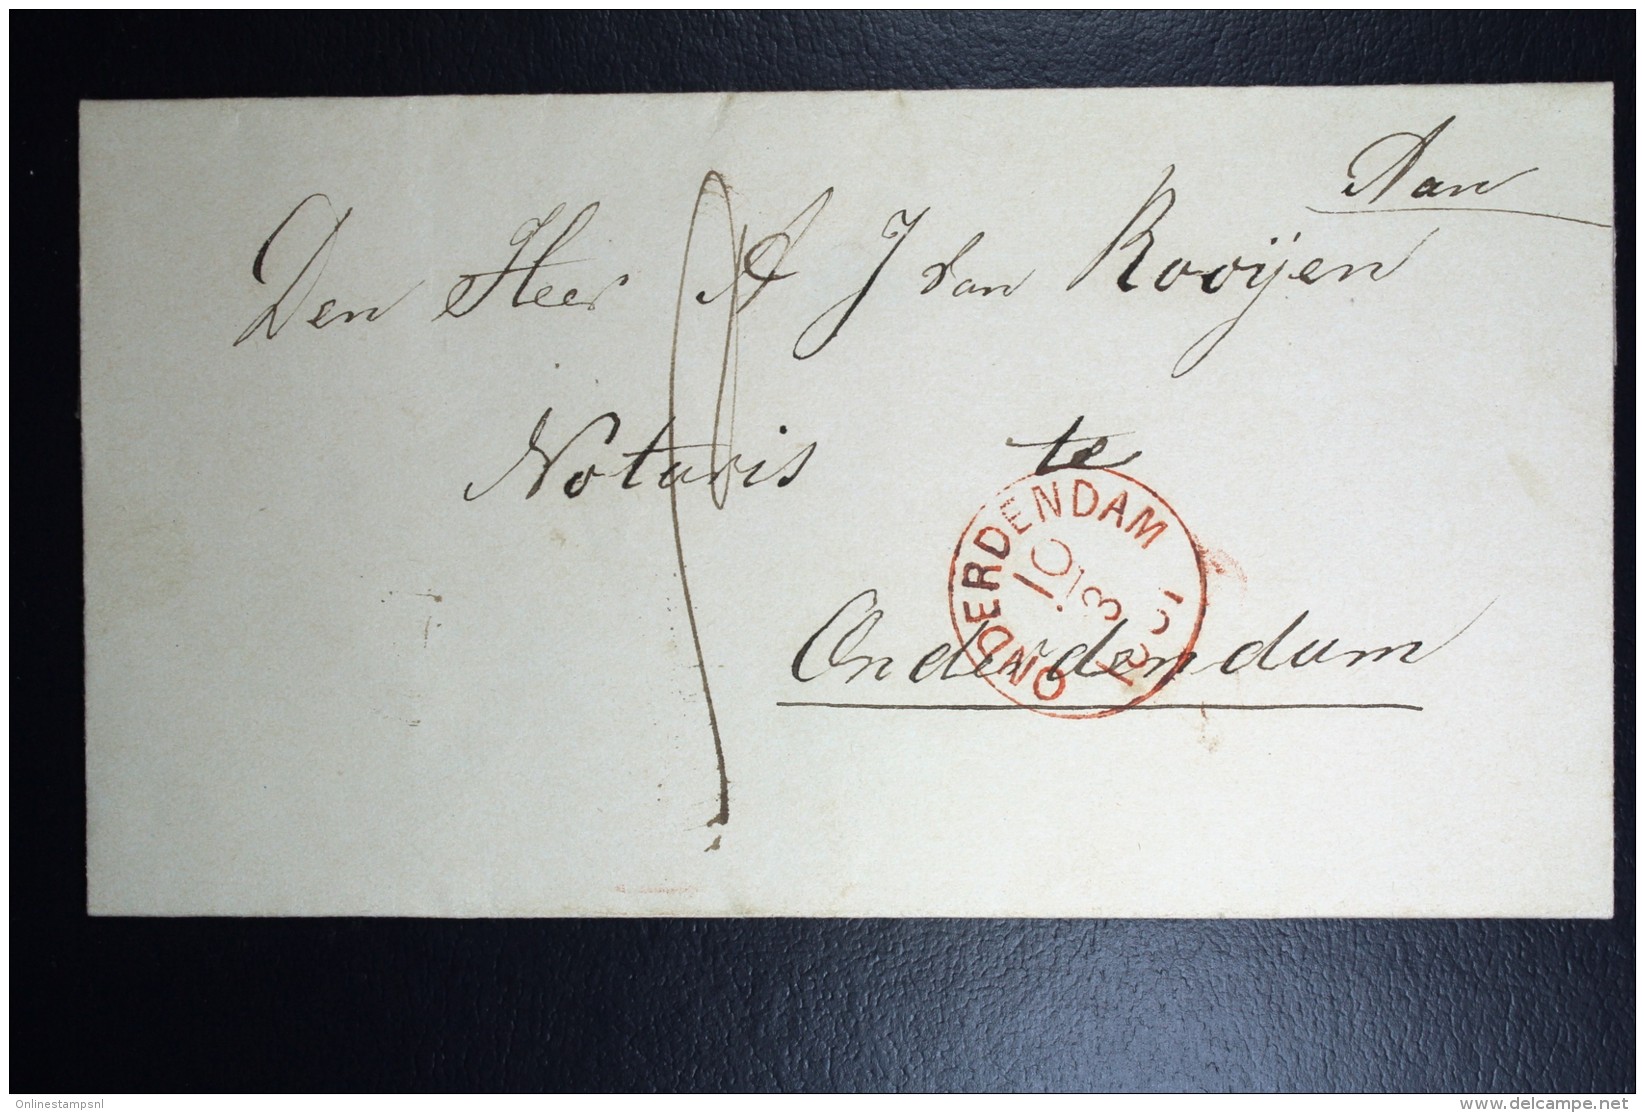 Aan
Den Heer A J van Rooijen
Notaris te
ONDERDENDAM
10
3
Onderdendam
Onlinestampsnl
www.delcampe.net